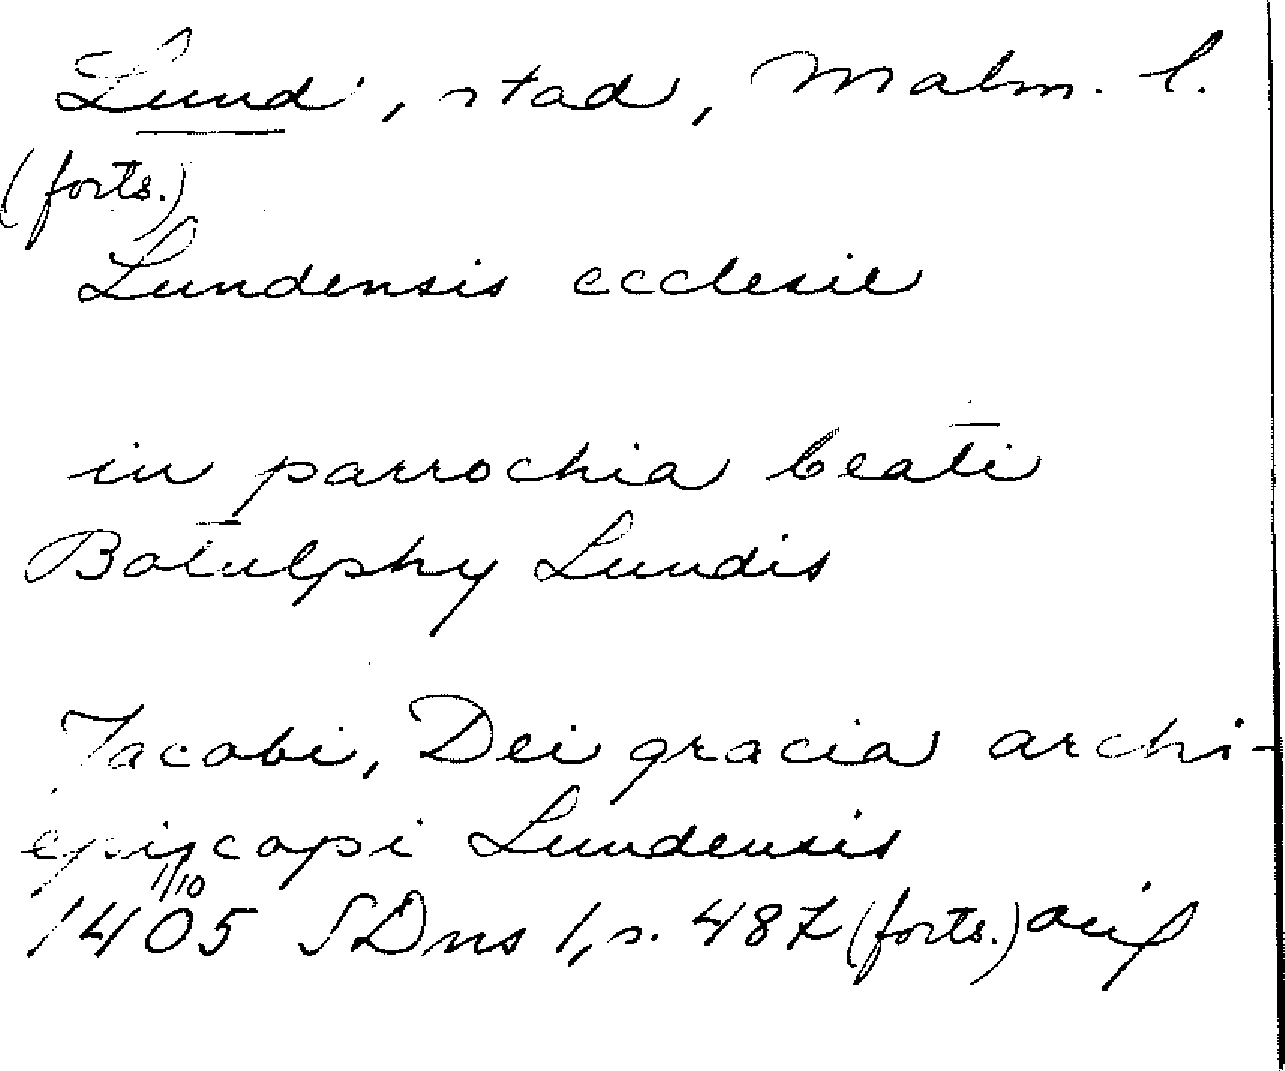 Lund, stad, Malm. l.
(forts.)
Lundensis ecclesie
in parrochia beati
Botulphy Lundis
Jacobi, Dei gracia archi-
episcopi Lundensis
1/10
1405 SDns 1, s. 487 (forts.)